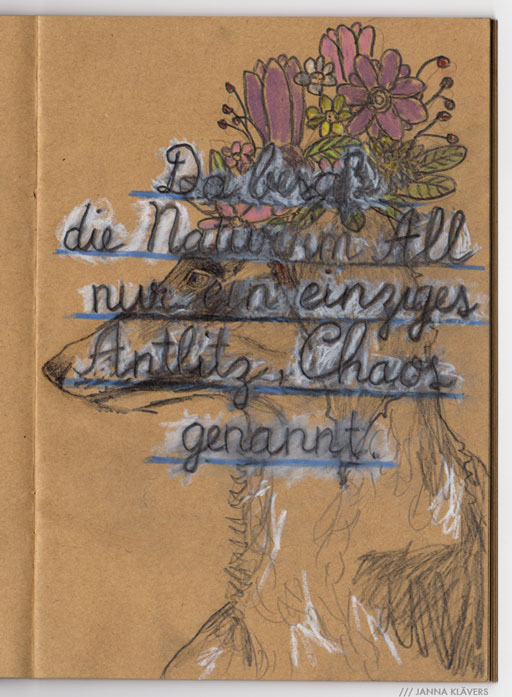 Da besaß
die Natur im All
nur ein einziges
Antlitz, Chaos
genannt.
/// JANNA KLÄVERS